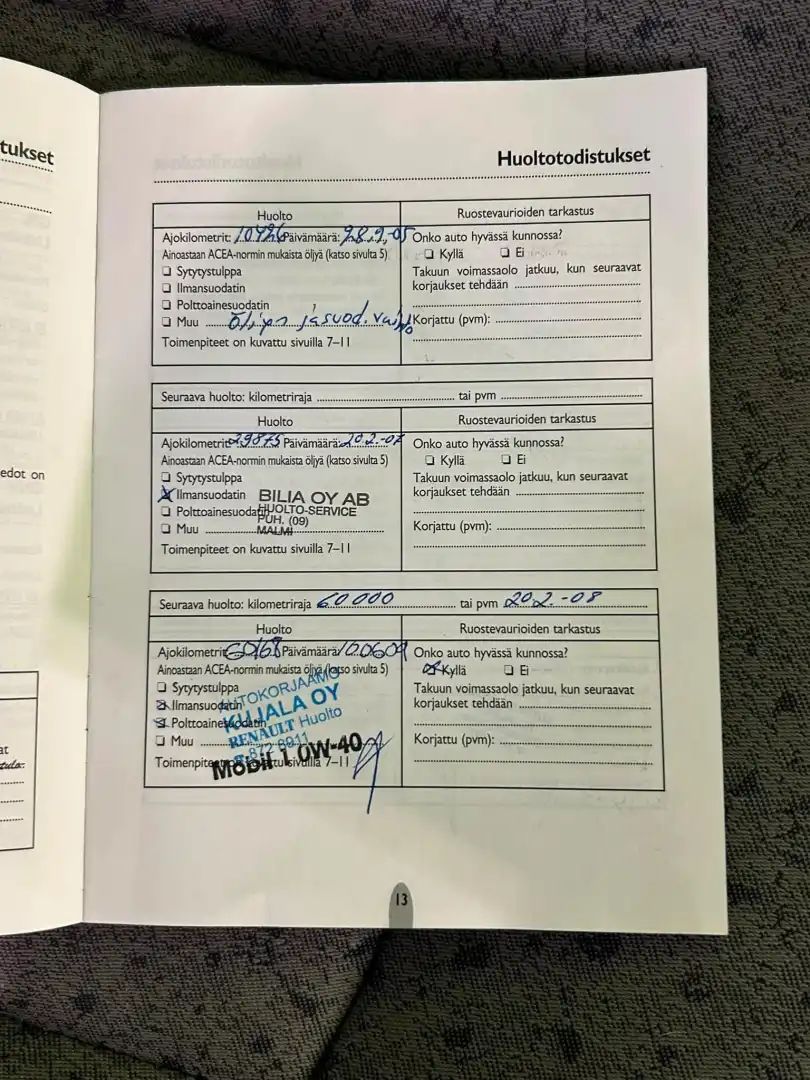 tukset
edot on
at
Huoltotodistukset
Huolto
Ruostevaurioiden tarkastus
Ajokilometrit: 10426 Päivämäärä: 28.9.-05
Onko auto hyvässä kunnossa?
Ainoastaan ACEA-normin mukaista öljyä (katso sivulta 5)
Kyllä Ei
Sytytystulppa
Takuun voimassaolo jatkuu, kun seuraavat
korjaukset tehdään
Ilmansuodatin
Polttoainesuodatin
Muu Öljyn ja suod. vaihto
Korjattu (pvm):
Toimenpiteet on kuvattu sivuilla 7–11
Seuraava huolto: kilometriraja tai pvm
Huolto
Ruostevaurioiden tarkastus
Ajokilometrit: 29875 Päivämäärä: 20.2.-07
Onko auto hyvässä kunnossa?
Ainoastaan ACEA-normin mukaista öljyä (katso sivulta 5)
Kyllä Ei
Sytytystulppa
Takuun voimassaolo jatkuu, kun seuraavat
korjaukset tehdään
Ilmansuodatin
Polttoainesuodatin
Muu
BILIA OY AB
HUOLTO-SERVICE
PUH. (09)
MALMI
Korjattu (pvm):
Toimenpiteet on kuvattu sivuilla 7–11
Seuraava huolto: kilometriraja 60000 tai pvm 20.2.-08
Huolto
Ruostevaurioiden tarkastus
Ajokilometrit: 60168 Päivämäärä: 100609
Onko auto hyvässä kunnossa?
Ainoastaan ACEA-normin mukaista öljyä (katso sivulta 5)
Kyllä Ei
Sytytystulppa
Takuun voimassaolo jatkuu, kun seuraavat
korjaukset tehdään
Ilmansuodatin
Polttoainesuodatin
Muu
AUTOKORJAAMO
KUJALA OY
RENAULT Huolto
Mobil 1 0W-40
Korjattu (pvm):
Toimenpiteet on kuvattu sivuilla 7–11
13